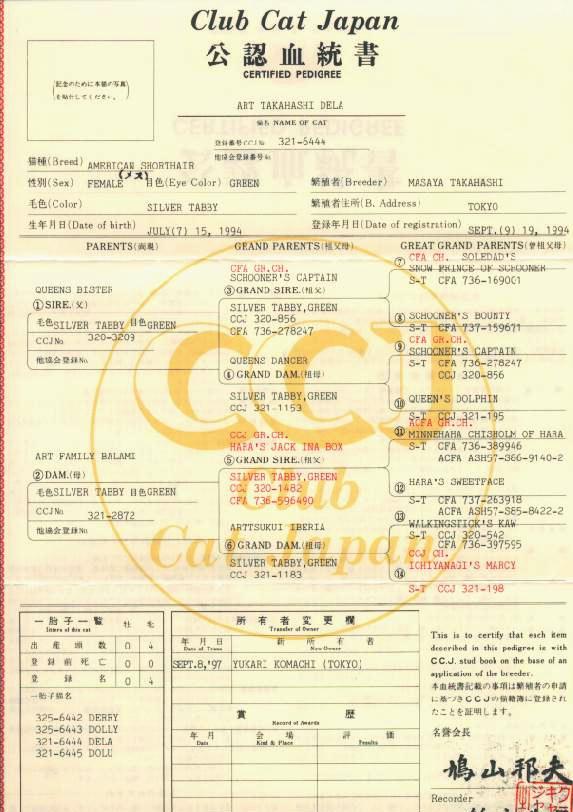 Club Cat Japan
公認血統書
CERTIFIED PEDIGREE
(記念のために本猫の写真
を貼付してください。)
ART TAKAHASHI DELA
猫名 NAME OF CAT
登録番号CCJ No 321-6444
他協会登録番号No.
猫種(Breed) AMERICAN SHORTHAIR
性別(Sex) FEMALE(メス) 目色(Eye Color) GREEN
繁殖者(Breeder) MASAYA TAKAHASHI
毛色(Color) SILVER TABBY
繁殖者住所(B. Address) TOKYO
生年月日(Date of birth) JULY(7) 15, 1994
登録年月日(Date of registration) SEPT.(9) 19, 1994
PARENTS(両親)
QUEENS BISTER
①SIRE.(父)
毛色SILVER TAEBY 目色GREEN
CCJNo. 320-3209
他協会登録No.
ART FAMILY BALAMI
②DAM.(母)
毛色SILVER TAEBY 目色GREEN
CCJNo. 321-2872
他協会登録No.
GRAND PARENTS(祖父母)
CFA GR.CH.
SCHOONER'S CAPTAIN
③GRAND SIRE.(祖父)
SILVER TABBY,GREEN
CCJ 320-856
CFA 736-278247
QUEENS DANCER
④GRAND DAM.(祖母)
SILVER TABBY,GREEN
CCJ 321-1153
CCJ GR.CH.
HARA'S JACK INA BOX
⑤GRAND SIRE.(祖父)
SILVER TABBY,GREEN
CCJ 320-1482
CFA 736-596490
ARTTSUKUI IBERIA
⑥GRAND DAM.(祖母)
SILVER TABBY,GREEN
CCJ 321-1183
GREAT GRAND PARENTS(曾祖父母)
⑦ CFA CH. SOLEDAD'S
SNOW PRINCE OF SCHOONER
S-T CFA 736-169001
⑧ SCHOONER'S BOUNTY
S-T CFA 737-159671
⑨ CFA GR.CH.
SCHOONER'S CAPTAIN
S-T CFA 736-278247
CCJ 320-856
⑩ QUEEN'S DOLPHIN
S-T CCJ 321-195
⑪ ACFA GR.CH.
MINNEHAHA CHISHOLM OF HARA
S-T CFA 736-389946
ACFA ASH57-S66-9140-2
⑫ HARA'S SWEETFACE
S-T CFA 737-263918
ACFA ASH57-S85-8422-2
⑬ WALKINGSTICK'S KAW
S-T CCJ 320-542
CFA 736-397595
CCJ CH.
⑭ ICHIYANAGI'S MARCY
S-T CCJ 321-198
CCJ
Club
Cat Japan
一胎子一覧 牡 牝
litters of this cat
出産頭数 0 4
登録前死亡 0 0
登録名 0 4
一胎子猫名
325-6442 DERBY
325-6443 DOLLY
321-6444 DELA
321-6445 DOLU
所有者変更欄
Transfer of Owner
年月日 新所有者
Date of Trans New Owner
SEPT.8,'97 YUKARI KOMACHI (TOKYO)
賞歴
Record of Awards
年月 会場 評価
Date Kind & Place Results
This is to certify that each item
described in this pedigree is with
C.C.J. stud book on the base of an
application of the breeder.
本血統書記載の事項は繁殖者の申請
に基づきCCJの猫籍簿に登録され
たことを証明します。
名誉会長
鳩山邦夫
Recorder